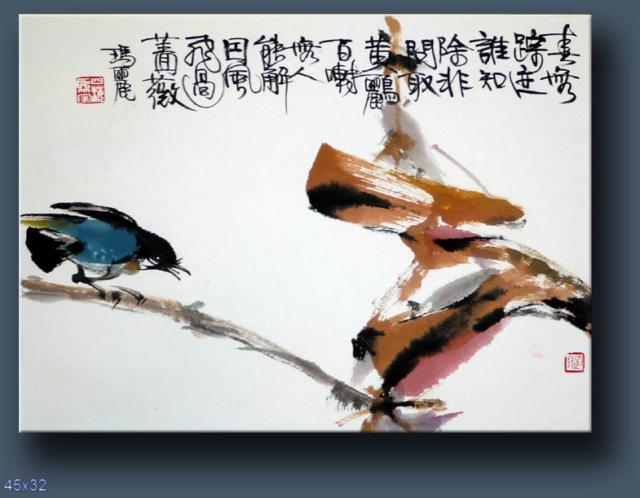 春無
踪迹
誰知
除非
問取
黄鸝
百囀
無人
能解
因風
飛過
薔薇
瑪麗
45x32